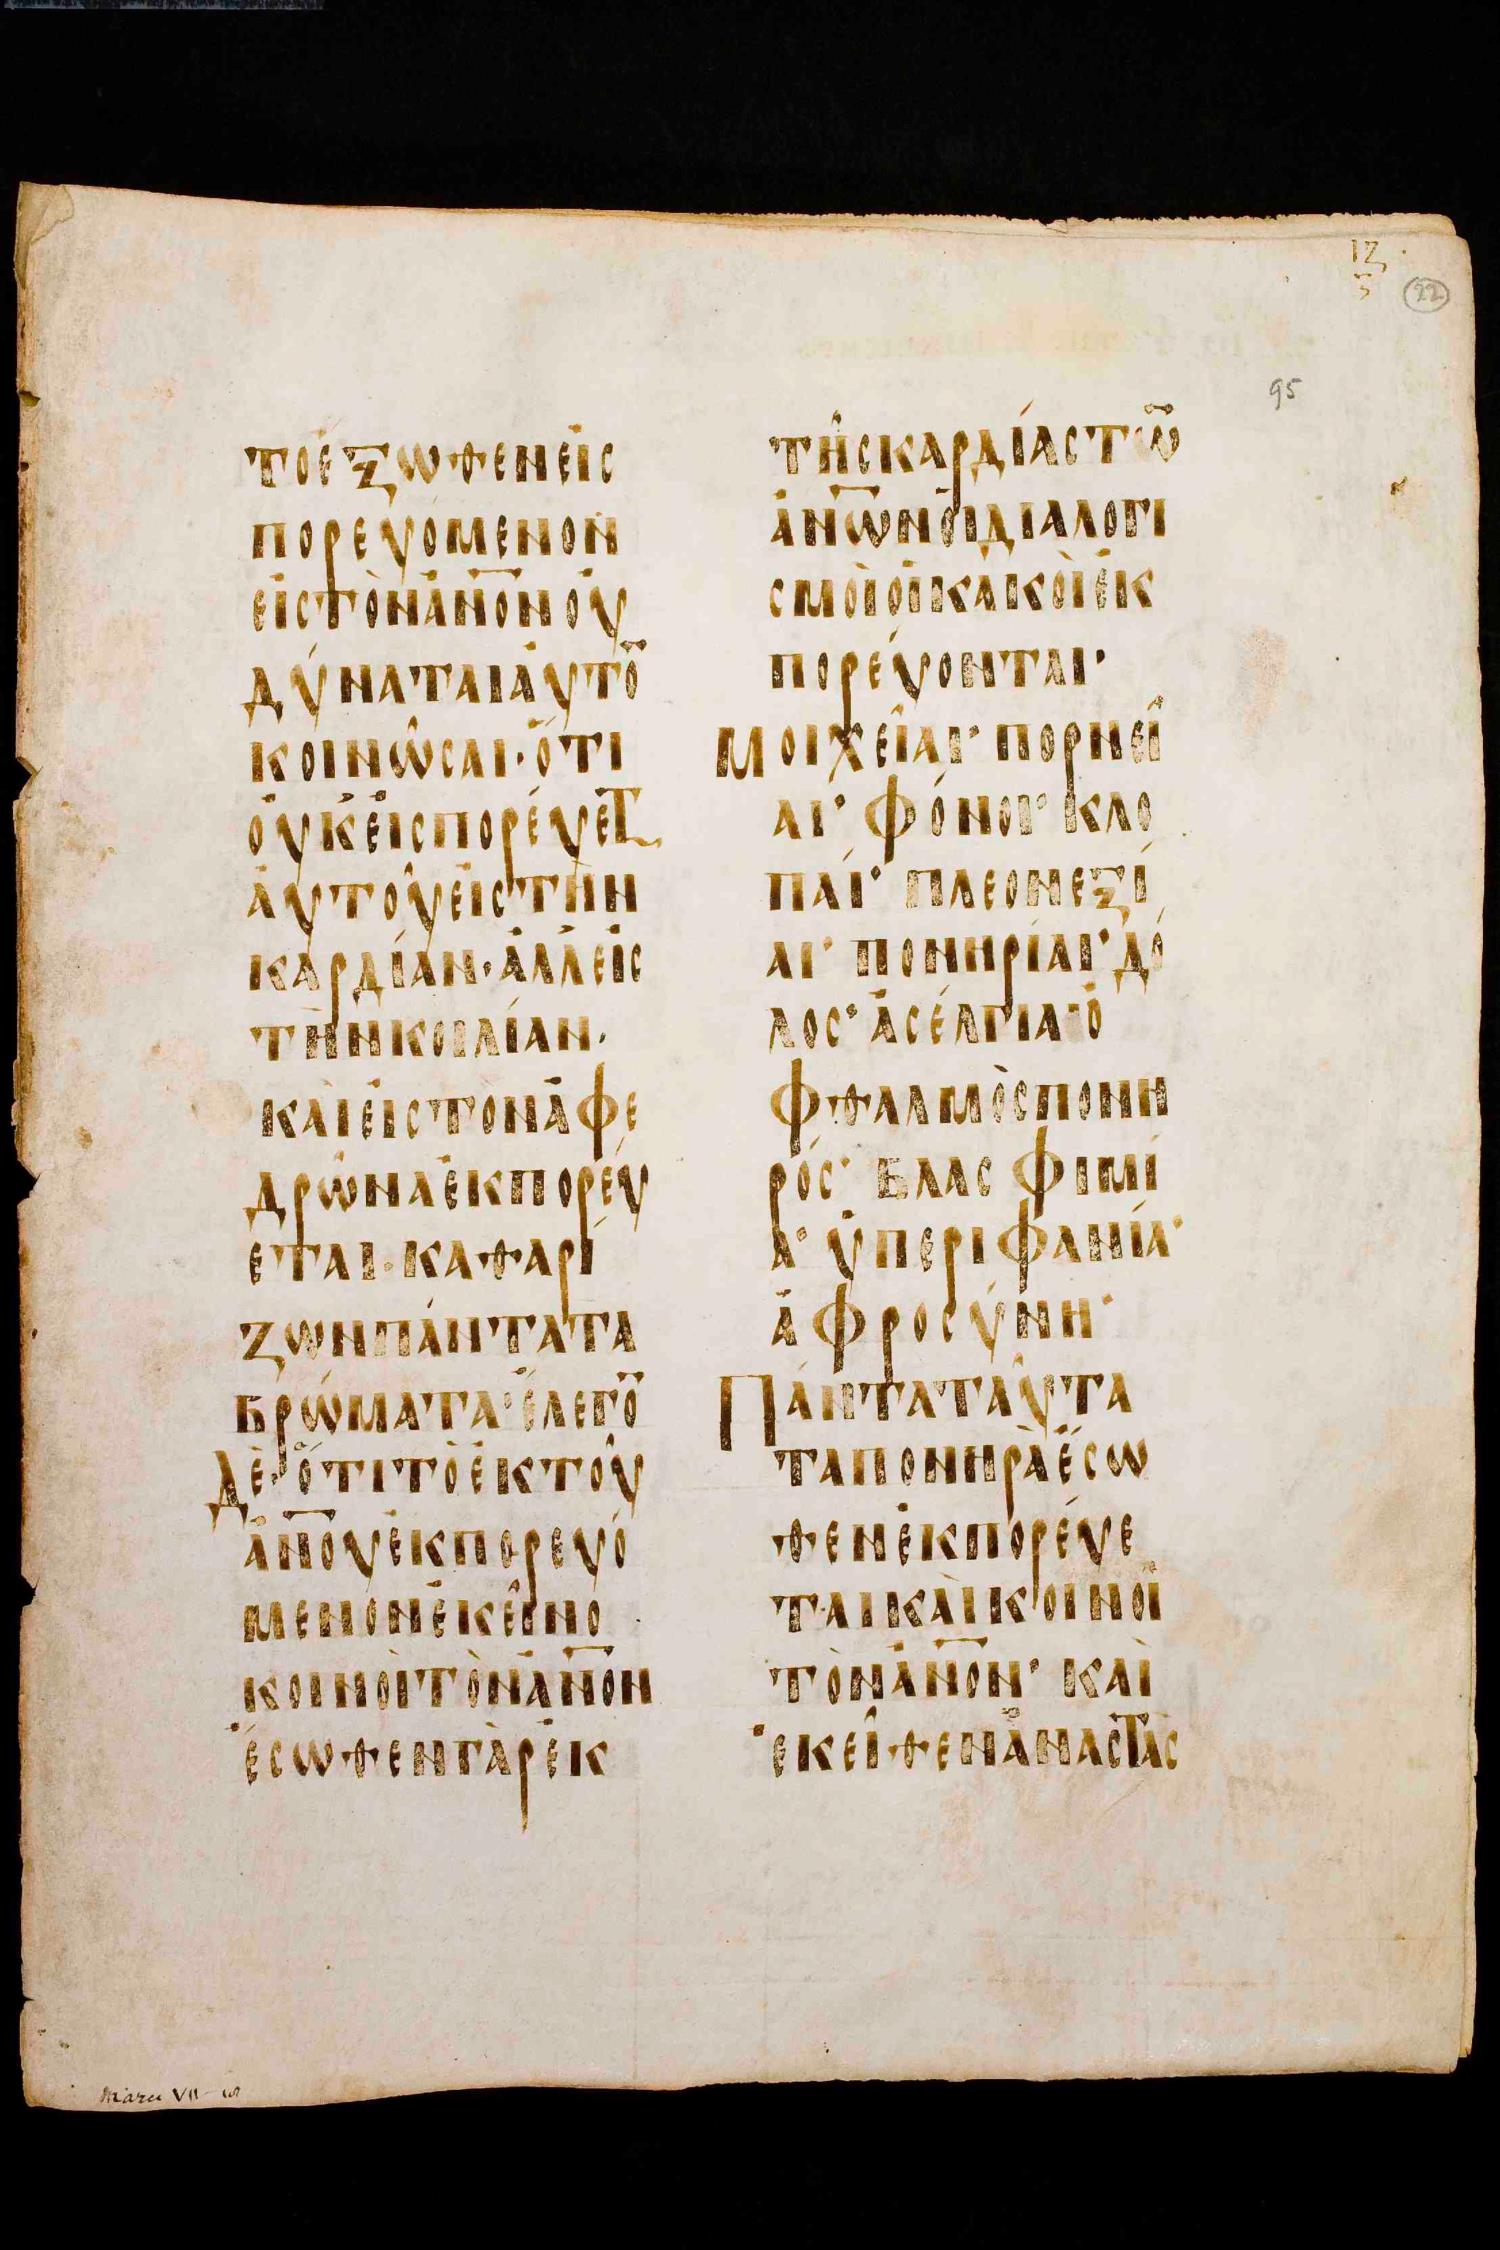 ΙΖ
22
95
ΤΟἘΞΩΘΕΝΕἸΣ
ΠΟΡΕΥΌΜΕΝΟΝ
ΕἸΣΤῸΝἈΝ̅Ο̅ΝΟΥ̓
ΔΎΝΑΤΑΙἈΥΤΟ̅
ΚΟΙΝΩ͂ΣΑΙ· ὍΤΙ
ΟΥ̓ΚἘΙΣΠΟΡΈΥΕΤ
ἈΥΤΟΥ͂ΕἸΣΤῊΝ
ΚΑΡΔΊΑΝ· ἈΛΛΕἸΣ
ΤῊΝΚΟΙΛΊΑΝ·
ΚΑῚΕἸΣΤΟΝἈΦΕ
ΔΡΩ͂ΝΑἘΚΠΟΡΈΥ
ΕΤΑΙ· ΚΑΘΑΡΊ
ΖΩΝΠΆΝΤΑΤΑ
ΒΡΏΜΑΤΑ· ἜΛΕΓΟ̅
ΔῈ· ὍΤΙΤῸἘΚΤΟΥ͂
ἈΝ̅Ο̅ΥἘΚΠΟΡΕΥΌ
ΜΕΝΟΝἘΚΕΙ͂ΝΟ
ΚΟΙΝΟῚΤῸΝἈΝ̅Ο̅Ν
ἜΣΩΘΕΝΓᾺΡἘΚ
ΤΗ͂ΣΚΑΡΔΊΑΣΤΩ̅
ἈΝ̅Ω̅ΝΟἹΔΙΑΛΟΓΙ
ΣΜΟῚΟἹΚΑΚΟῚἘΚ
ΠΟΡΈΥΟΝΤΑΙ·
ΜΟΙΧΕΙ͂ΑΙ· ΠΟΡΝΕΙ͂
ΑΙ· ΦΌΝΟΙ· ΚΛΟ
ΠΑΊ· ΠΛΕΟΝΕΞΊ
ΑΙ· ΠΟΝΗΡΊΑΙ· ΔΌ
ΛΟΣ· ἈΣΈΛΓΙΑ· Ὀ
ΦΘΑΛΜῸΣΠΟΝΗ
ΡΌΣ· ΒΛΑΣΦΙΜΊ
Α· ὙΠΕΡΙΦΑΝΊΑ·
ἈΦΡΟΣΎΝΗ·
ΠΆΝΤΑΤΑΥ͂ΤΑ
ΤΑΠΟΝΗΡᾺἜΣΩ
ΘΕΝἘΚΠΟΡΈΥΕ
ΤΑΙΚΑῚΚΟΙΝΟΙ͂
ΤῸΝἈΝ̅Ο̅Ν· ΚΑῚ
ἘΚΕΙ͂ΘΕΝἈΝΑΣΤᾺΣ
Marci VII